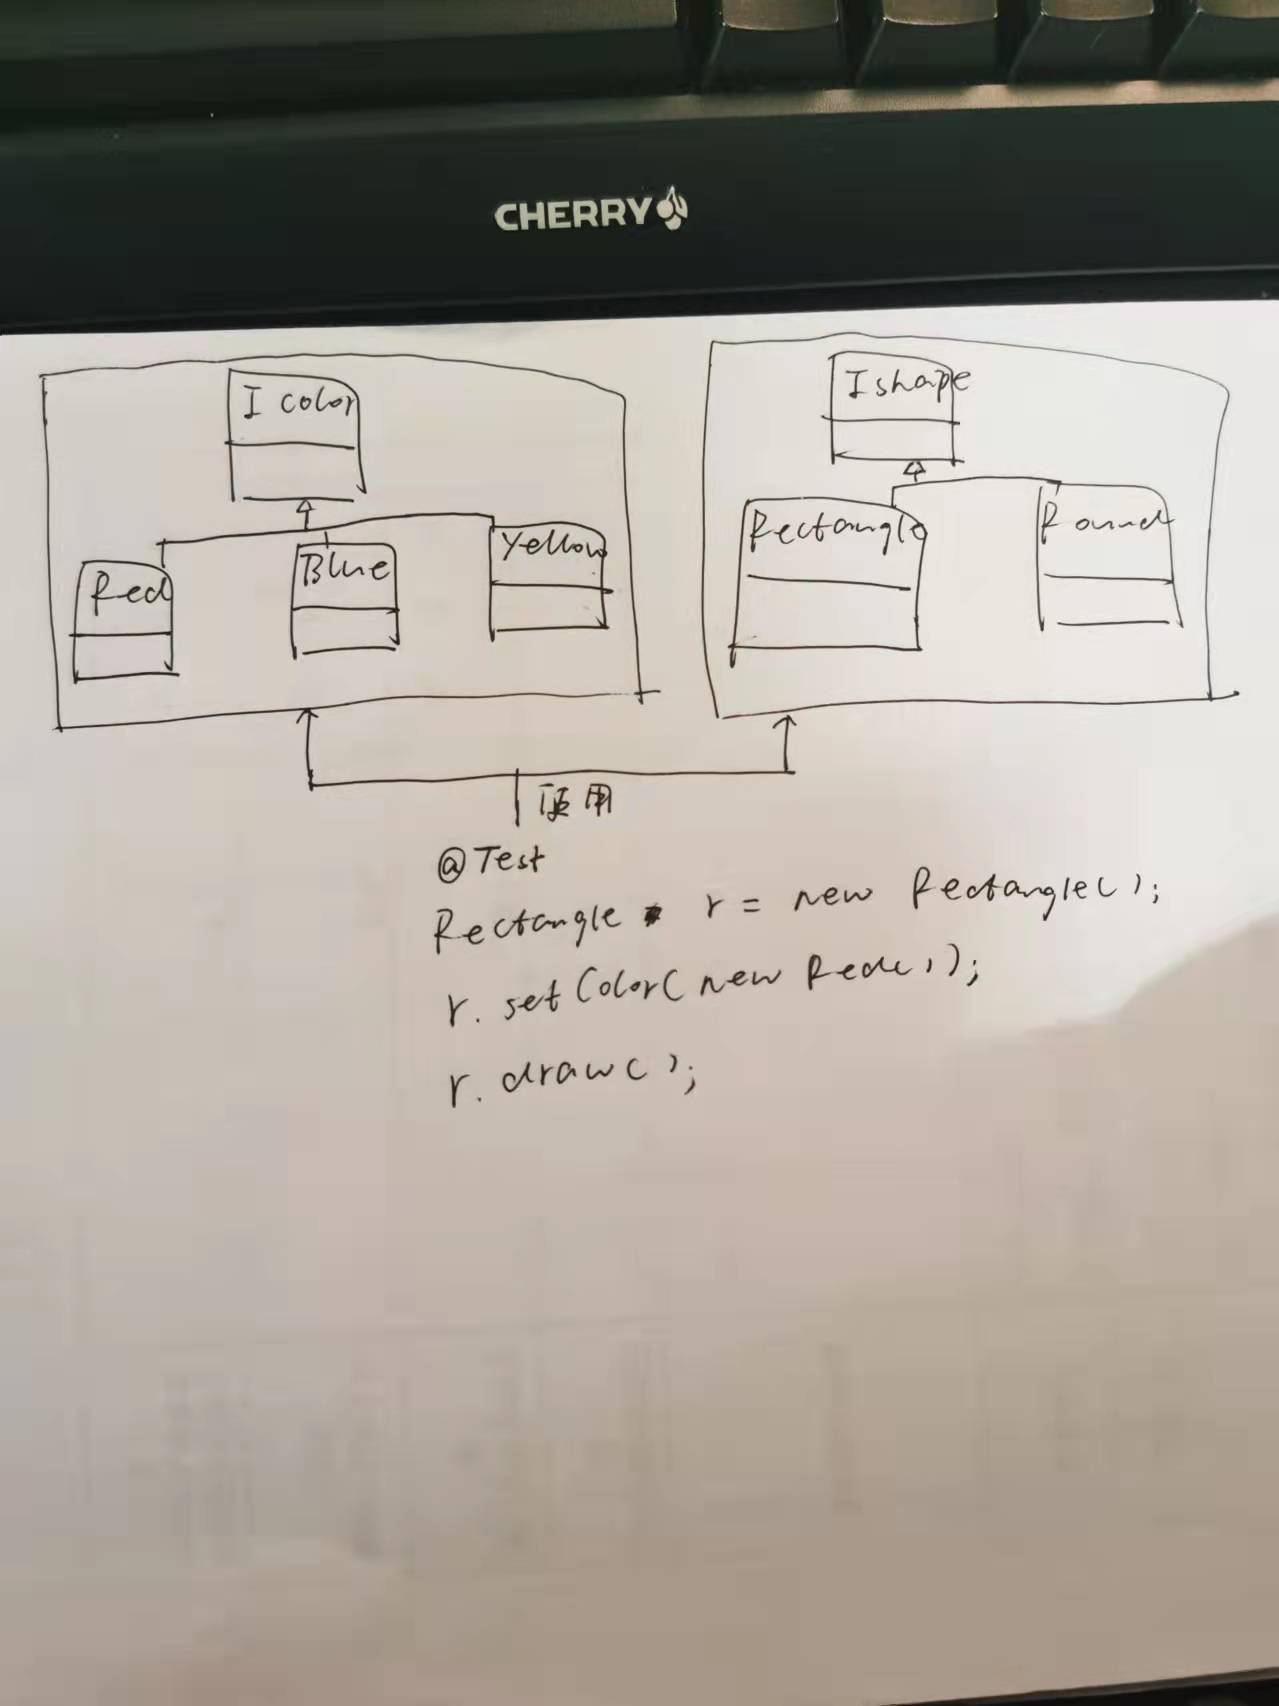 CHERRY
I color
I shape
Red
Blue
Yellow
Rectangle
Round
使用
@Test
Rectangle r = new Rectangle();
r. setColor(new Red());
r. draw();